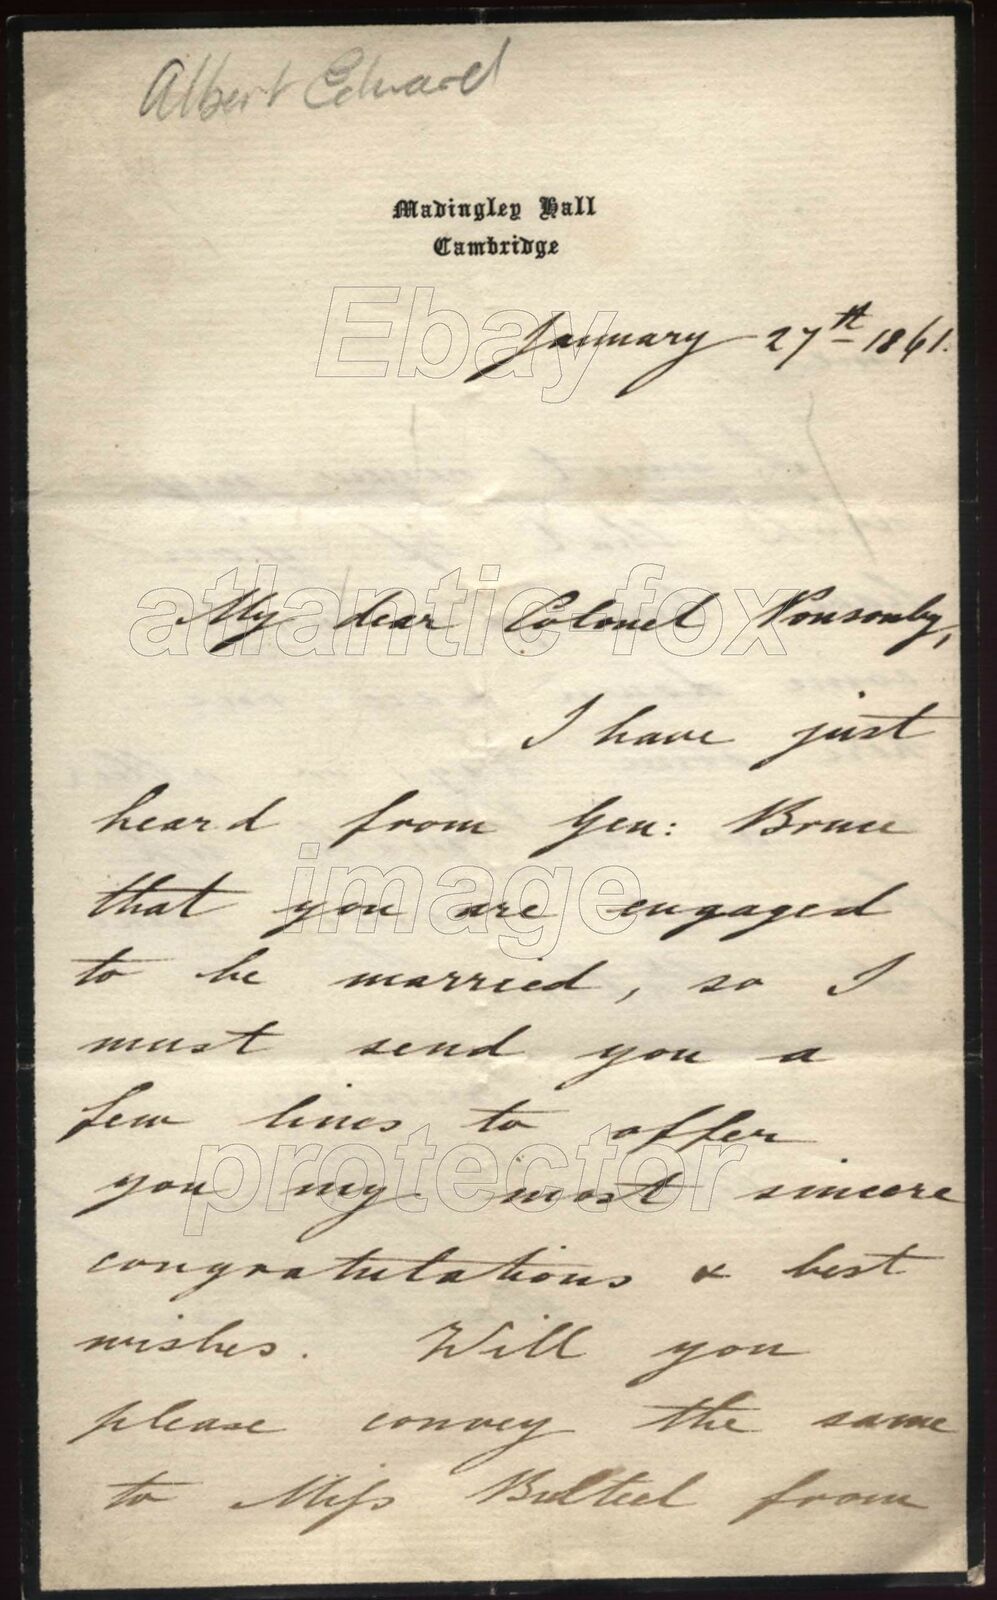 Albert Edward
Madingley Hall
Cambridge
January 27th 1861.
My dear Colonel Ponsonby,
I have just
heard from Gen: Bruce
that you are engaged
to be married, so I
must send you a
few lines to offer
you my most sincere
congratulations & best
wishes. Will you
please convey the same
to Miss Bulteel from
Ebay
atlantic fox
image
protector